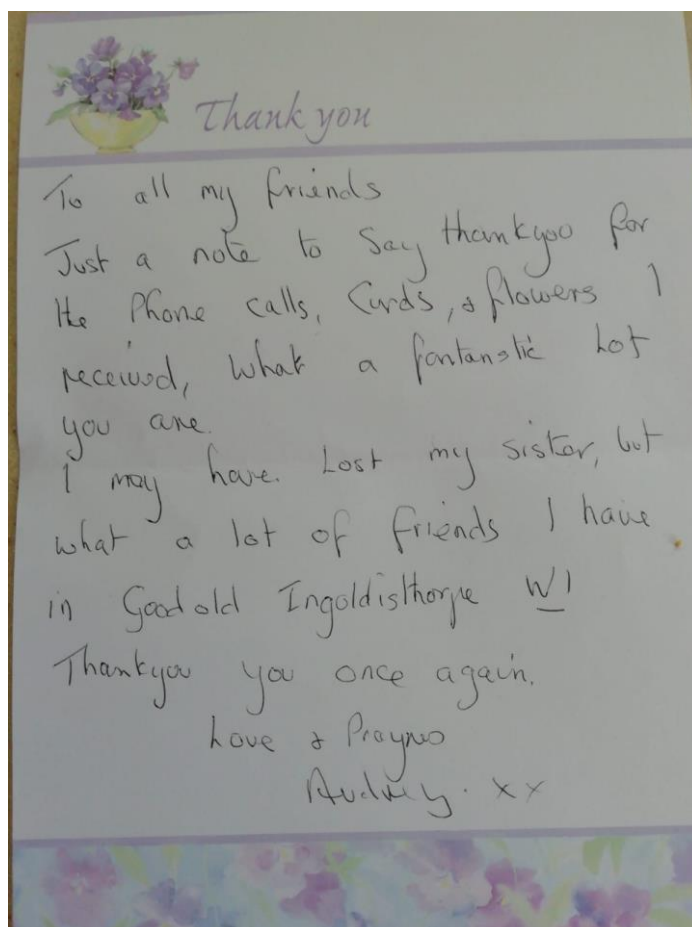 Thank you
To all my friends
Just a note to Say thankyou for
the Phone calls, Cards, & flowers I
received, what a fantanstic Lot
you are.
I may have. Lost my sister, but
what a lot of friends I have
in Good old Ingoldisthorpe WI
Thankyou you once again.
Love & Prayers
Audrey. xx